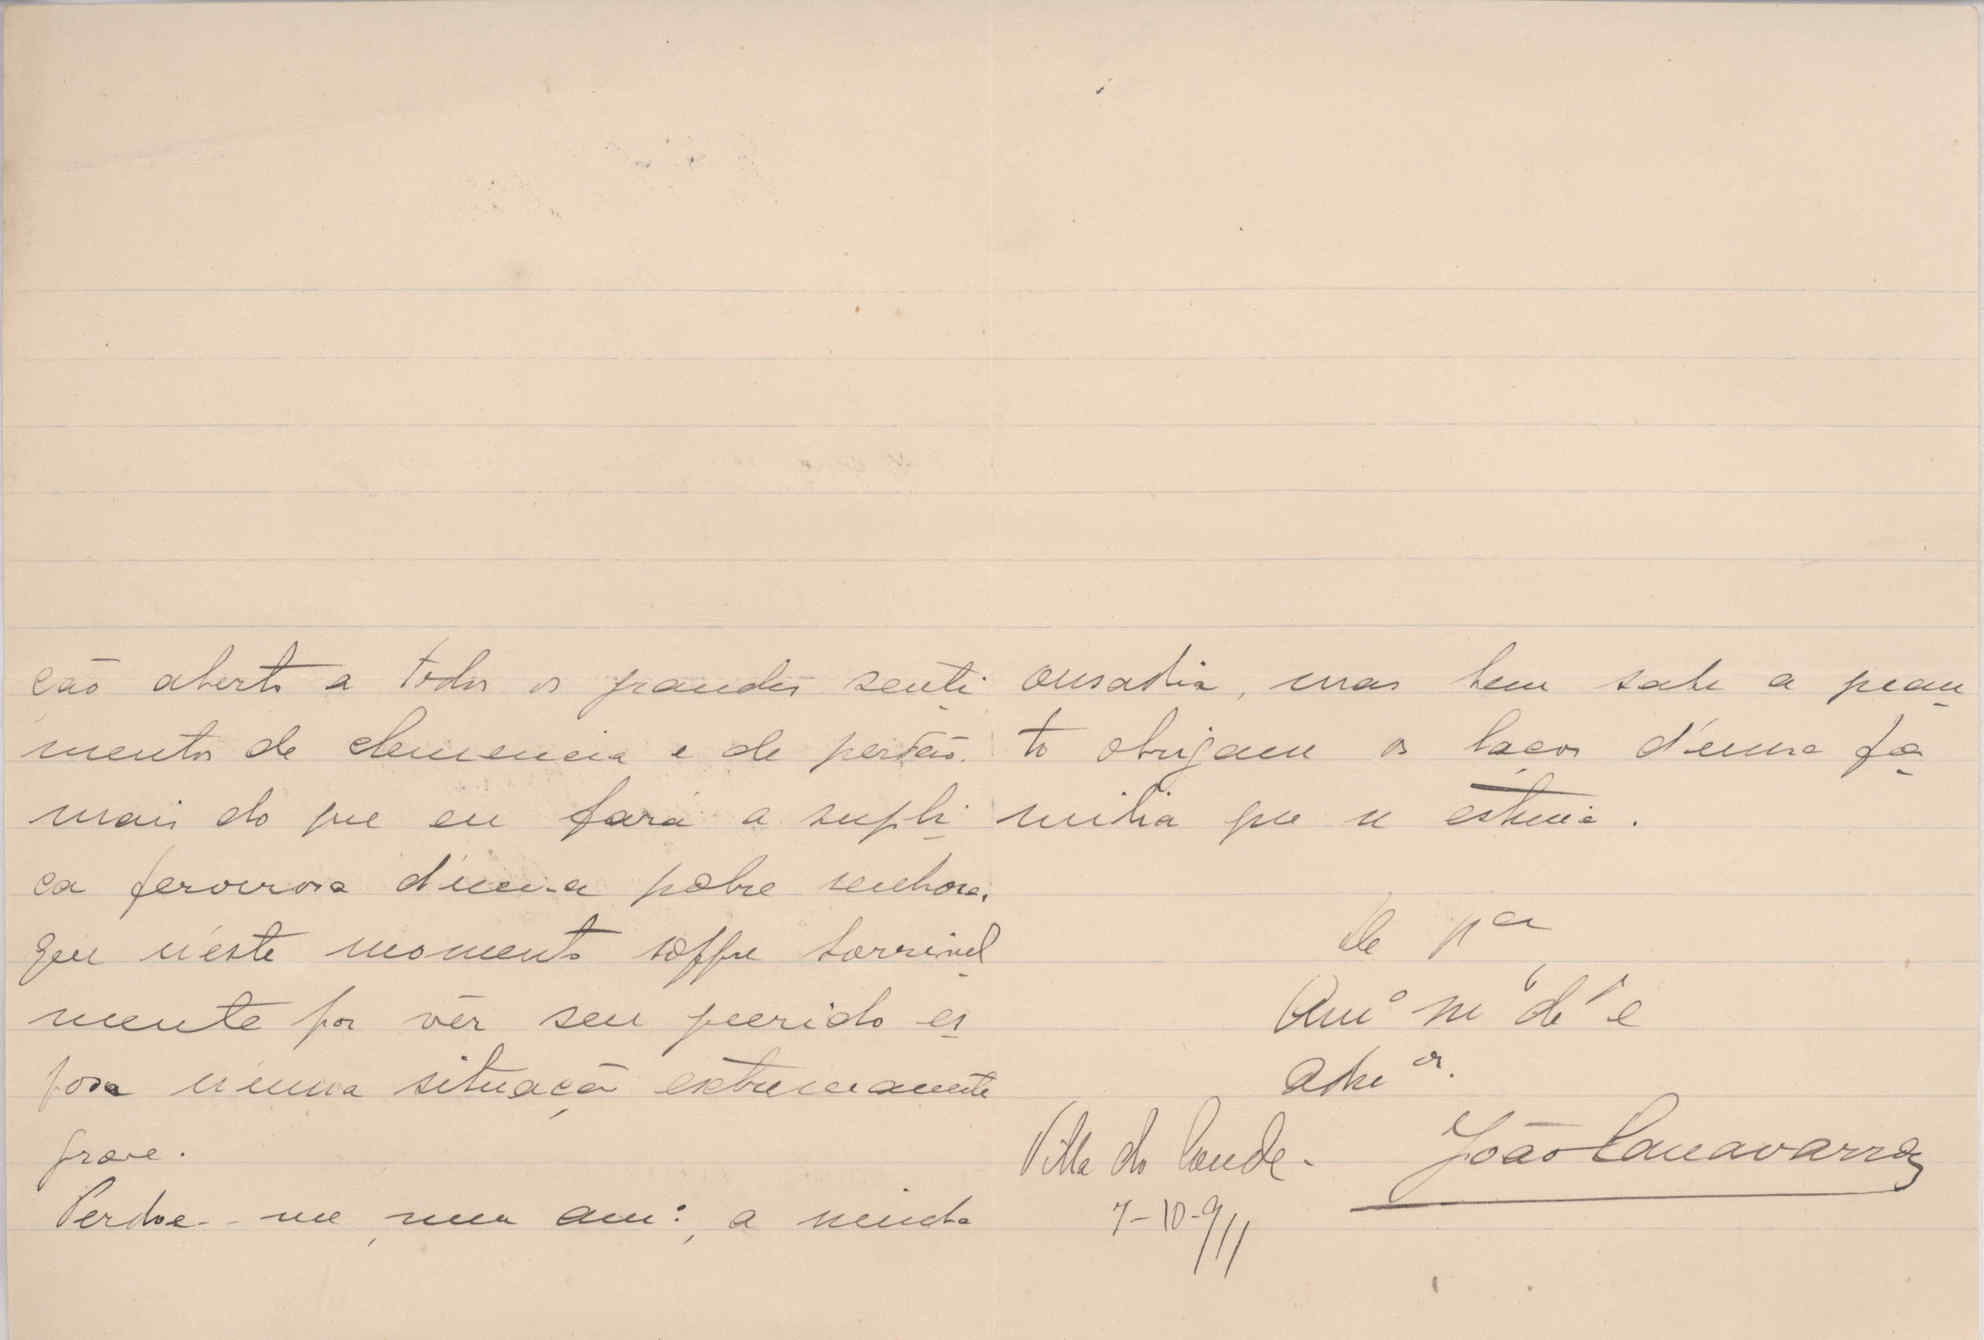 ção aberto a todos os grandes senti
mentos de clemencia e de perdão.
mais do que eu fará a supli
ca fervorosa d'uma pobre senhora,
que n'este momento soffre horrivel
mente por vêr seu querido es
poso n'uma situação extremamente
grave.
Perdoe-me, meu am:, a minha
ousadia, mas bem sabe a quan
to obrigam os laços d'uma fa
milia que se estima.
De V.
Am.º m.to
João Canavarro
Villa do Conde.
7-10-911